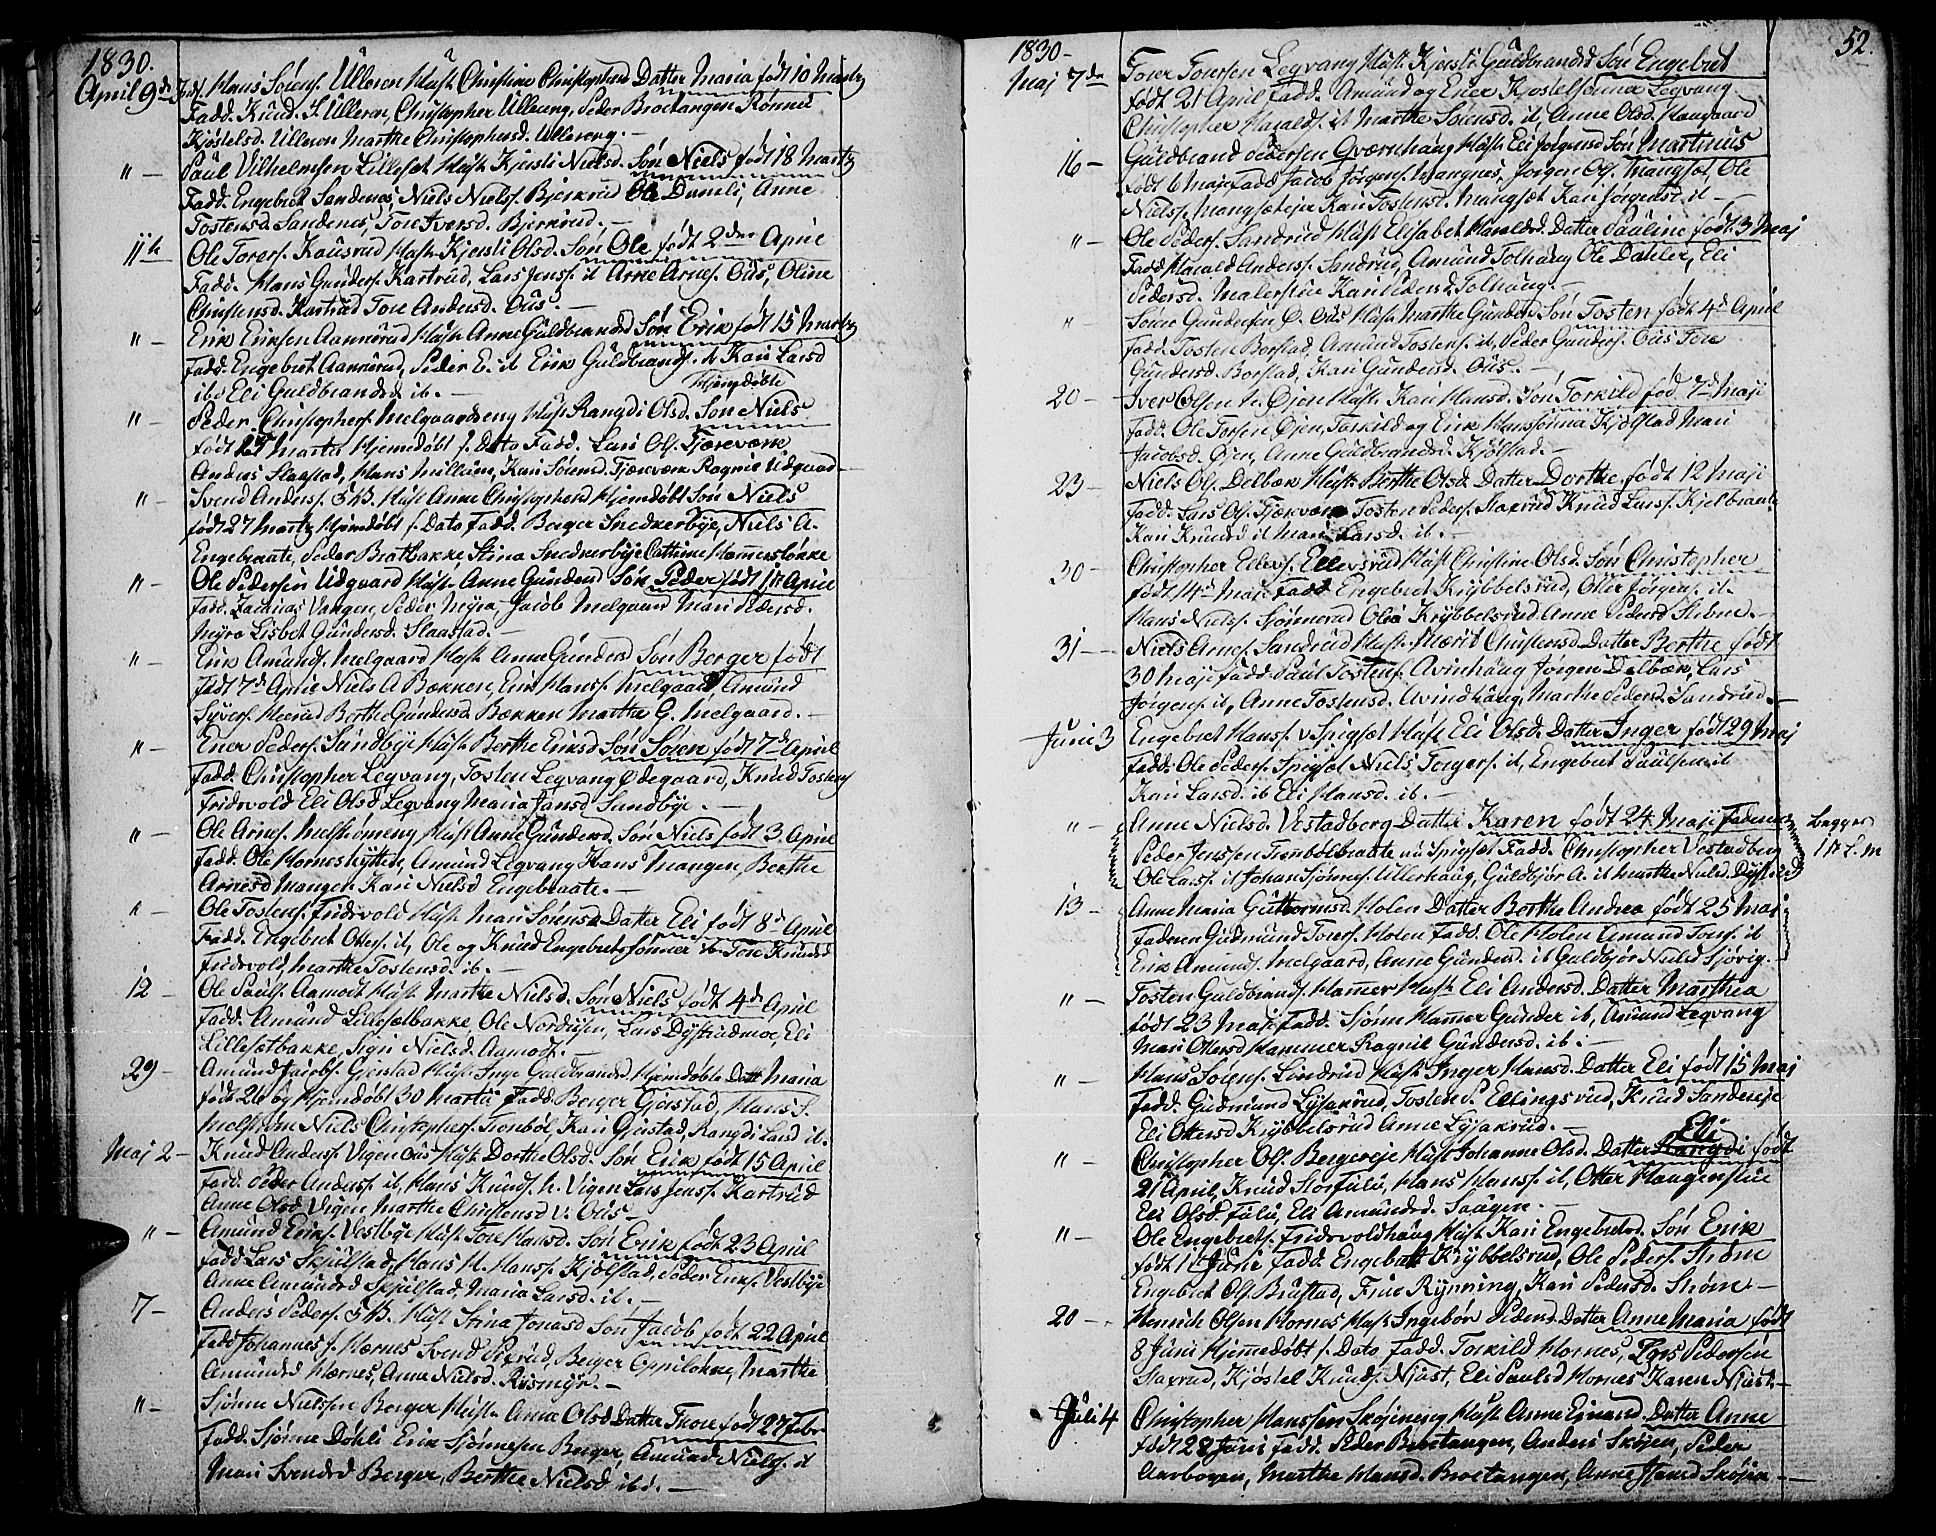 1830.
April 9de Hans Sørens. Ulleren Hust. Christine Christophersd Datter Maria født 10 Martz
Fadd. Knud S. Ulleren, Christopher Ullereng, Peder Broetangen Rønnei
Kjøstelsd. Ulleren Marthe Christophersd. Ullereng.
" Paul Vilhelmsen Lillesæt Hust. Kjersti Nielsd. Søn Niels født 18 Martz
Fadd. Engebret Sandenes, Niels Nielss. Bjerkrud Ole Damli, Anne
Tostensd. Sandenes, Tore Iversd. Bjerkrud.
11te Ole Torers. Kausrud Hust. Kjersti Olsd. Søn Ole født 2den April
Fadd. Hans Gunders. Kartrud, Lars Jenss. it Arne Arnes. Ous, Oline
Christensd. Kartrud Tore Andersd. Ous.
" Erik Eriksen Aannerud Hust. Anne Guldbrandsd Søn Erik født 15 Martz
Fadd. Engebret Aannerud, Peder E. it Erik Guldbrands. it Kari Larsd
ibd Eli Guldbrandsd. ib.
Hjemdøbte
" Peder Christophers. Melgaardseng Hust. Rangdi Olsd. Søn Niels
født Martz Hjemdøbt s. Dato Fadd. Lars Ols. Tjereværk
Anders Slaastad, Hans Millum, Kari Sørensd. Tjærværk Ragnie Udgaad
" Svend Anders. S.B. Hust. Anne Christophersd Hjemdøbt Søn Niels
født 27 Martz Hjemdøbt s. Dato Fadd. Berger Snedkerbye, Niels A.
Engebraate, Peder Bratbakke Stina Snedkerbye Cathrine Hammerstøkke
" Ole Pedersen Udgaard Hust. Anne Gundersd Søn Peder født 1ste April
Fadd. Zacharias Vangen, Peder Myra, Jacob Melgaard Mari Pedersd.
Myra Lisbet Gundersd. Slaastad.
" Erik Amunds. Melgaard Hust. Anne Gundersd Søn Berger født
født 7de April Niels A Bækken, Erik Hanss. Melgaard, Amund
Syvers. Heerud Berthe Gundersd. Bækken Marthe G. Melgaard.
" Ener Peders. Sundbye Hust. Berthe Eriksd Søn Søren født 7de April
Fadd. Christopher Legvang, Tosten Legvang Ødegaard, Knud Tostens
Fridsvold Eli Olsd Legvang Maria Jansd Sandbye.
" Ole Arnes. Melstrømeng Hust. Anne Gundersd. Søn Niels født 3. April
Fadd. Ole Horneshytten, Amund Legvang Hans Mangen, Berthe
Arnesd Mangen Kari Nielsd Engebraate.
" Ole Tostens. Fridsvold Hust. Mari Sørensd Datter Eli født 8de April
Fadd. Engebret Otters. it, Ole og Knud Engebretssønner ib Tore Knudsd
Fridsvold, Marthe Tostensd. ib.
12 Ole Pauls. Aamodt Hust. Marthe Nielsd. Søn Niels født 4de April
Fadd. Amund Lillesætbakke, Ole Nordbyen, Lars Dystrudmoe, Eli
Lillesætbakke, Sigri Nielsd. Aamodt.
29 Amund Jacobs. Gjerstad Hust. Inge Guldbrandsd. Hjemdøbte Datt. Maria
født 26 og Hjemdøbt 30 Martz Fadd. Berger Gjerstad, Hans S.
Melstrøm Niels Christophers. Trønbøl, Kari Gjerstad, Rangdi Larsd it.
Maj 2 Knud Anders. Vigen Ous Hust. Dorthe Olsd. Søn Erik født 15 April
Fadd. Peder Anders. it, Hans Knuds. N. Vigen Lars Jenss. Kartrud
Anne Olsd. Vigen Marthe Christensd V. Ous
" Amund Eriks. Vestbye Hust. Tore Hansd. Søn Erik født 23 April
Fadd Lars Skjølstad, Hans H. Hanss. Kjølstad, Peder Eriks. Vestbye
Anne Amundsd Skjølstad, Maria Larsd. ib.
7 Anders Peders. S.B. Hust. Stina Jonasd Søn Jacob født 22 April
Fadd Johannes J. Hærnes Svend Saxrud, Berger Oppistokke, Marthe
Amundsd Hærnes, Anne Nielsd. Rismyr.
" Sjønne Nielssen Berger Hust. Anne Olsd Datter Thore født 27 Febr
Fadd. Sjønne Døhli Erik Sjønnesen Berger, Amund Nielss. it
Mari Svendsd Berger, Berthe Nielsd ibd.
1830
52.
Maj 7de Torer Torersen Legvang Hust. Kjersti Guldbrandsd Søn Engebret
født 21 April Fadd. Amund og Ener Kjøstelsønner Legvang
Christopher Haralds. it Marthe Sørensd. it, Anne Olsd. Haugaard
16 Guldbrand Pedersen Qværnhaug Hust. Eli Jørgensd Søn Martinus
født 6 Maj Fadd Jacob Jørgens. Vangnes, Jørgen Ols. Mangset, Ole
Nielss. Mangsæteje Kari Tostensd. Mangsæt Kari Jørgensd. it
" Ole Peders. Sandrud Hust. Elisabet Haraldsd. Datter Pauline født 3 Maj
Fadd. Harald Anderss. Sandrud, Amund Tolhaug Ole Dahler, Eli
Pedersd. Malerstue Kari Pedersd. Tolhaug.
" Søren Gundersen Ø. Ous Hust. Marthe Gundersd Søn Tosten født 4de April
Fadd. Tosten Borstad, Amund Tostens. it, Peder Gunders. Ous Tore
Gundersd. Borstad, Kari Gundersd. Ous.
20 Iver Olsen N. Øjen Hust. Kari Hansd. Søn Torkild fød 7de Maji
Fadd. Ole Torsen Øjen, Torkild og Erik Hanssønner Kjølstad Mari
Jacobsd. Øjen, Anne Guldbrandsd. Kjølstad.
23 Niels Ols. Delbæk Hust. Berthe Olsd. Datter Dorthe født 12 Maji
Fadd. Lars Ols. Tjærværk Tosten Peders. Saxrud Knud Larss. Kjelbraate
Kari Knudsd it Mari Larsd. ib.
30 Christopher Ellefs. Ellevsrud Hust. Christine Olsd. Søn Christopher
født 14de Maji Fadd Engebret Krybbelsrud, Otter Jørgens. it.
Hans Nielss. Sjønnerud Olia Krybbelsrud Anne Pedersd Stømne.
31 Niels Arnes. Sandrud Hust. Marit Christensd. Datter Berthe født
30 Maji Fadd. Paul Tostens. Avinhaug Jørgen Delbæk, Lars
Jørgens. it, Anne Tostensd. Avindhaug, Marthe Pedersd. Sandrud.
Juni 3 Engebret Hanss. V. Spigsæt Hust. Eli Olsd. Datter Inger født 29 Maj
Fadd. Ole Peders. Spigsæt Niels Torgers. it, Engebret Paulsen it
Kari Larsd. ib Eli Hansd. ib.
" Anne Nielsd. Vestadberg Datter Karen født 24. Maji Faderen
Peder Jenssen Trønbølbraate nu Spigsæt Fadd. Christopher Vestadberg
Ole Larss. it Johan Sjønnes. Ullerhaug, Guldbjør A. it Marthe Nielsd. Dystrud
Begges
1ste L. M
13 Anne Maria Gutbormsd Holen Datter Berthe Andrea født 25 Maj
Faderen Gudmund Torers. Holen Fadd. Ole Holen Amund Tors. it
Erik Amunds. Melgaard, Anne Gundersd. it Guldbjør Nielsd Sjøvig.
" Tosten Guldbrands. Hammer Hust. Eli Andersd. Datter Marthea
født 23 Maji Fadd. Sjønn Hammer Gunder ib, Amund Legvang
Mari Ottersd Hammer Ragnil Gundersd. ib.
" Hans Sørens. Lindrud Hust. Inger Hansd. Datter Eli født 15 Maj
Fadd. Gudmund Lysakrud, Tosten P. Ellingsrud, Knud Sandereje
Eli Ottersd Krybbelsrud Anne Lysakrud.
Eli
" Christopher Ols. Bergereje Hust. Johanne Olsd. Datter Rangdi født
21 April, Knud Storfulu, Hans Hanss. it, Otter Haugenstue
Eli Olsd. Fulu, Eli Amundsd. Saagen.
" Ole Engebrets. Fridsvoldhaug Hust. Kari Engebretsd. Søn Erik
født 1ste Juni Fadd. Engebrett Krybbelsrud, Ole Peders. Strøm
Engebret Ols. Brustad, Frue Rynning, Kari Pedersd. Strøm
20 Henrich Olsen Hornes Hust. Ingebør Pedersd. Datter Anne Maria født
8 Juni Hjemmedøbt s. Dato Fadd. Torkild Hornes, Lars Pedersen
Saxrud, Kjøstel Knuds. Njust, Eli Paulsd Hornes Karen Njust.
Juli 4 Christopher Hanssen Skøjeneng Hust. Anne Ejnarsd. Datter Anne
født 28 Juni Fadd. Peder Broetangen, Anders Skøjen, Peder
Aarbogen, Marthe Hansd. Broetangen, Anne Jansd Skøjen